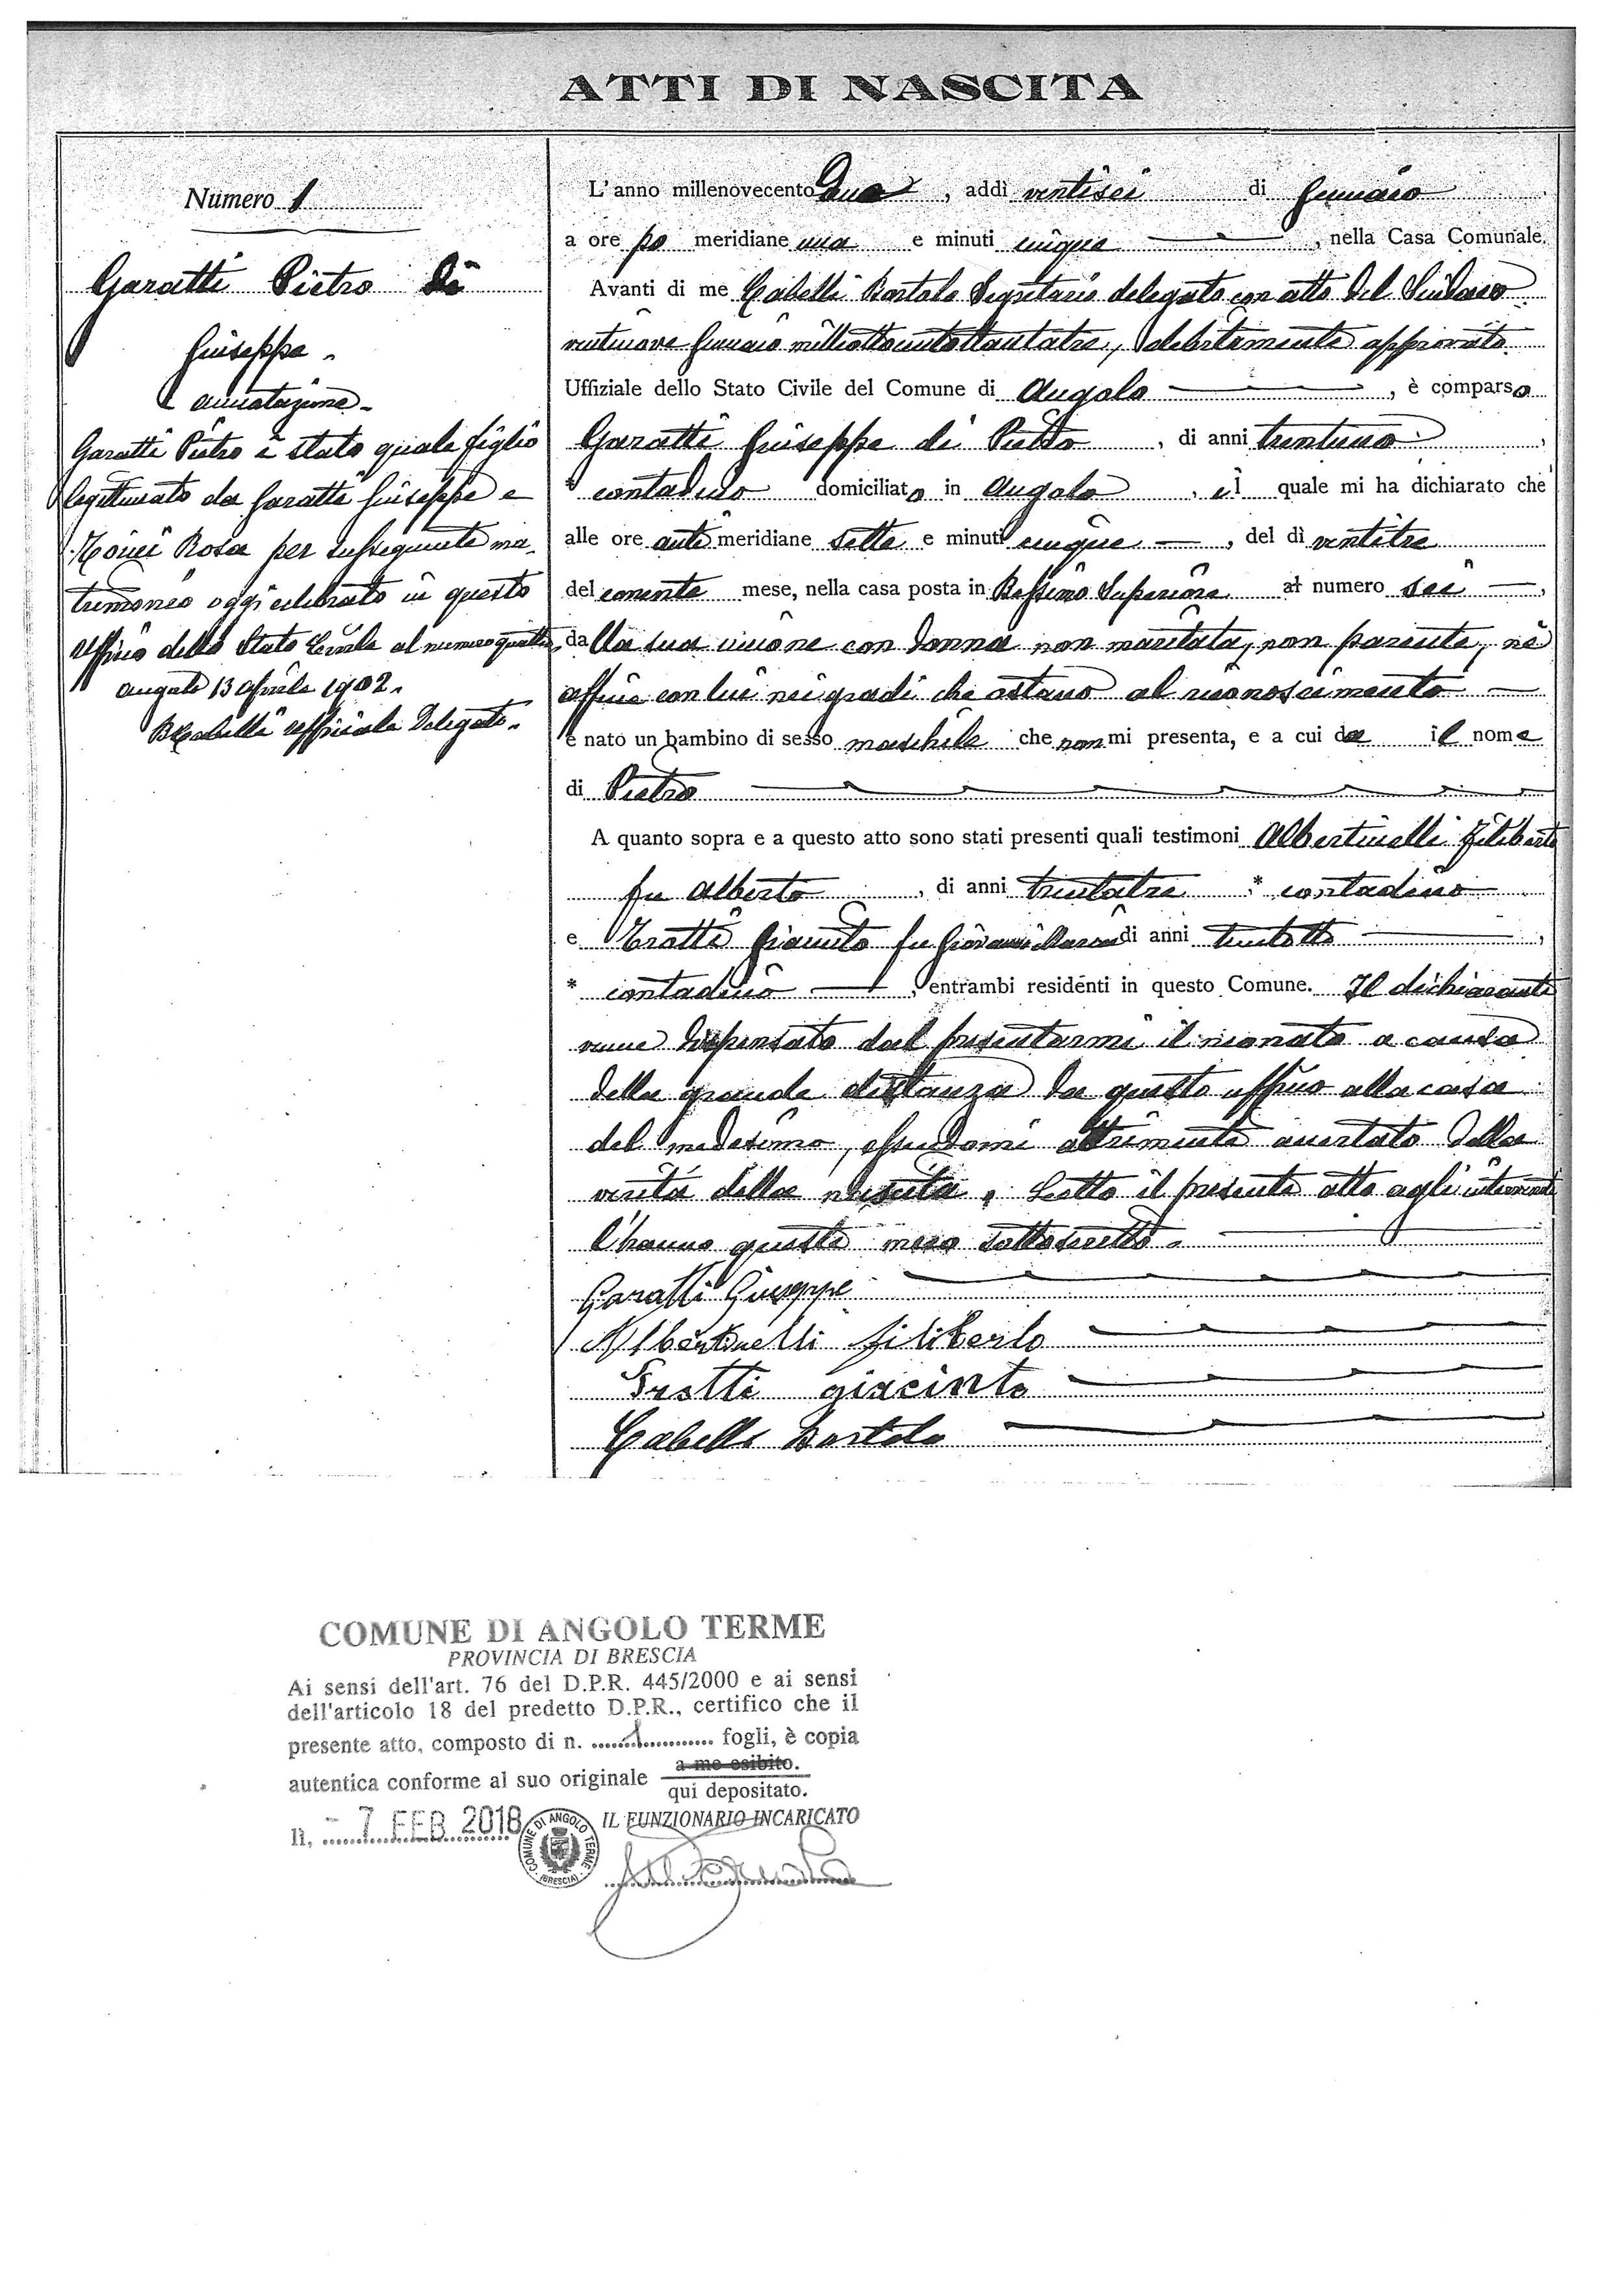 ATTI DI NASCITA
Numero 1
Garatti Pietro di
Giuseppe.
Annotazione.
Garatti Pietro è stato quale figlio
legittimato da Garatti Giuseppe e
Rosa per susseguente ma
trimonio oggi celebrato in questo
Uffizio dello Stato Civile al numero quattro.
Angolo 13 Aprile 1902.
BCabelli Ufficiale Delegato.
L'anno millenovecento due, addì ventisei di Gennaio
a ore po meridiane una e minuti cinque, nella Casa Comunale.
Avanti di me Cabelli Bortolo Segretario delegato con atto del Sindaco
ventinove Gennaio milleottocentottantatre, debitamente approvato
Uffiziale dello Stato Civile del Comune di Angolo, è comparso
Garatti Giuseppe di Pietro, di anni trentuno,
* contadino domiciliato in Angolo, il quale mi ha dichiarato che
alle ore anti meridiane sette e minuti cinque, del dì ventitre
del corrente mese, nella casa posta in Bessimo Superiore al numero sei,
dalla sua unione con donna non maritata, non parente, nè
affine con lui nei gradi che ostano al riconoscimento
è nato un bambino di sesso maschile che non mi presenta, e a cui da il nome
di Pietro
A quanto sopra e a questo atto sono stati presenti quali testimoni Albertinelli Filiberto
fu Alberto, di anni trentatre * contadino
e Trotti Giacinto fu Giovanni Maria di anni trentotto,
* contadino, entrambi residenti in questo Comune. Il dichiarante
venne dispensato dal presentarmi il neonato a causa
della grande distanza da questo uffizio alla casa
del medesimo, essendomi altrimenti accertato della
verità della nascita. Letto il presente atto agli intervenuti
l'hanno questi meco sottoscritto.
Garatti Giuseppe
Albertinelli filiberto
Trotti giacinto
Cabelli Bortolo
COMUNE DI ANGOLO TERME
PROVINCIA DI BRESCIA
Ai sensi dell'art. 76 del D.P.R. 445/2000 e ai sensi
dell'articolo 18 del predetto D.P.R., certifico che il
presente atto, composto di n. 1 fogli, è copia
autentica conforme al suo originale a me esibito.
qui depositato.
lì, - 7 FEB 2018
IL FUNZIONARIO INCARICATO
COMUNE DI ANGOLO TERME
(BRESCIA)